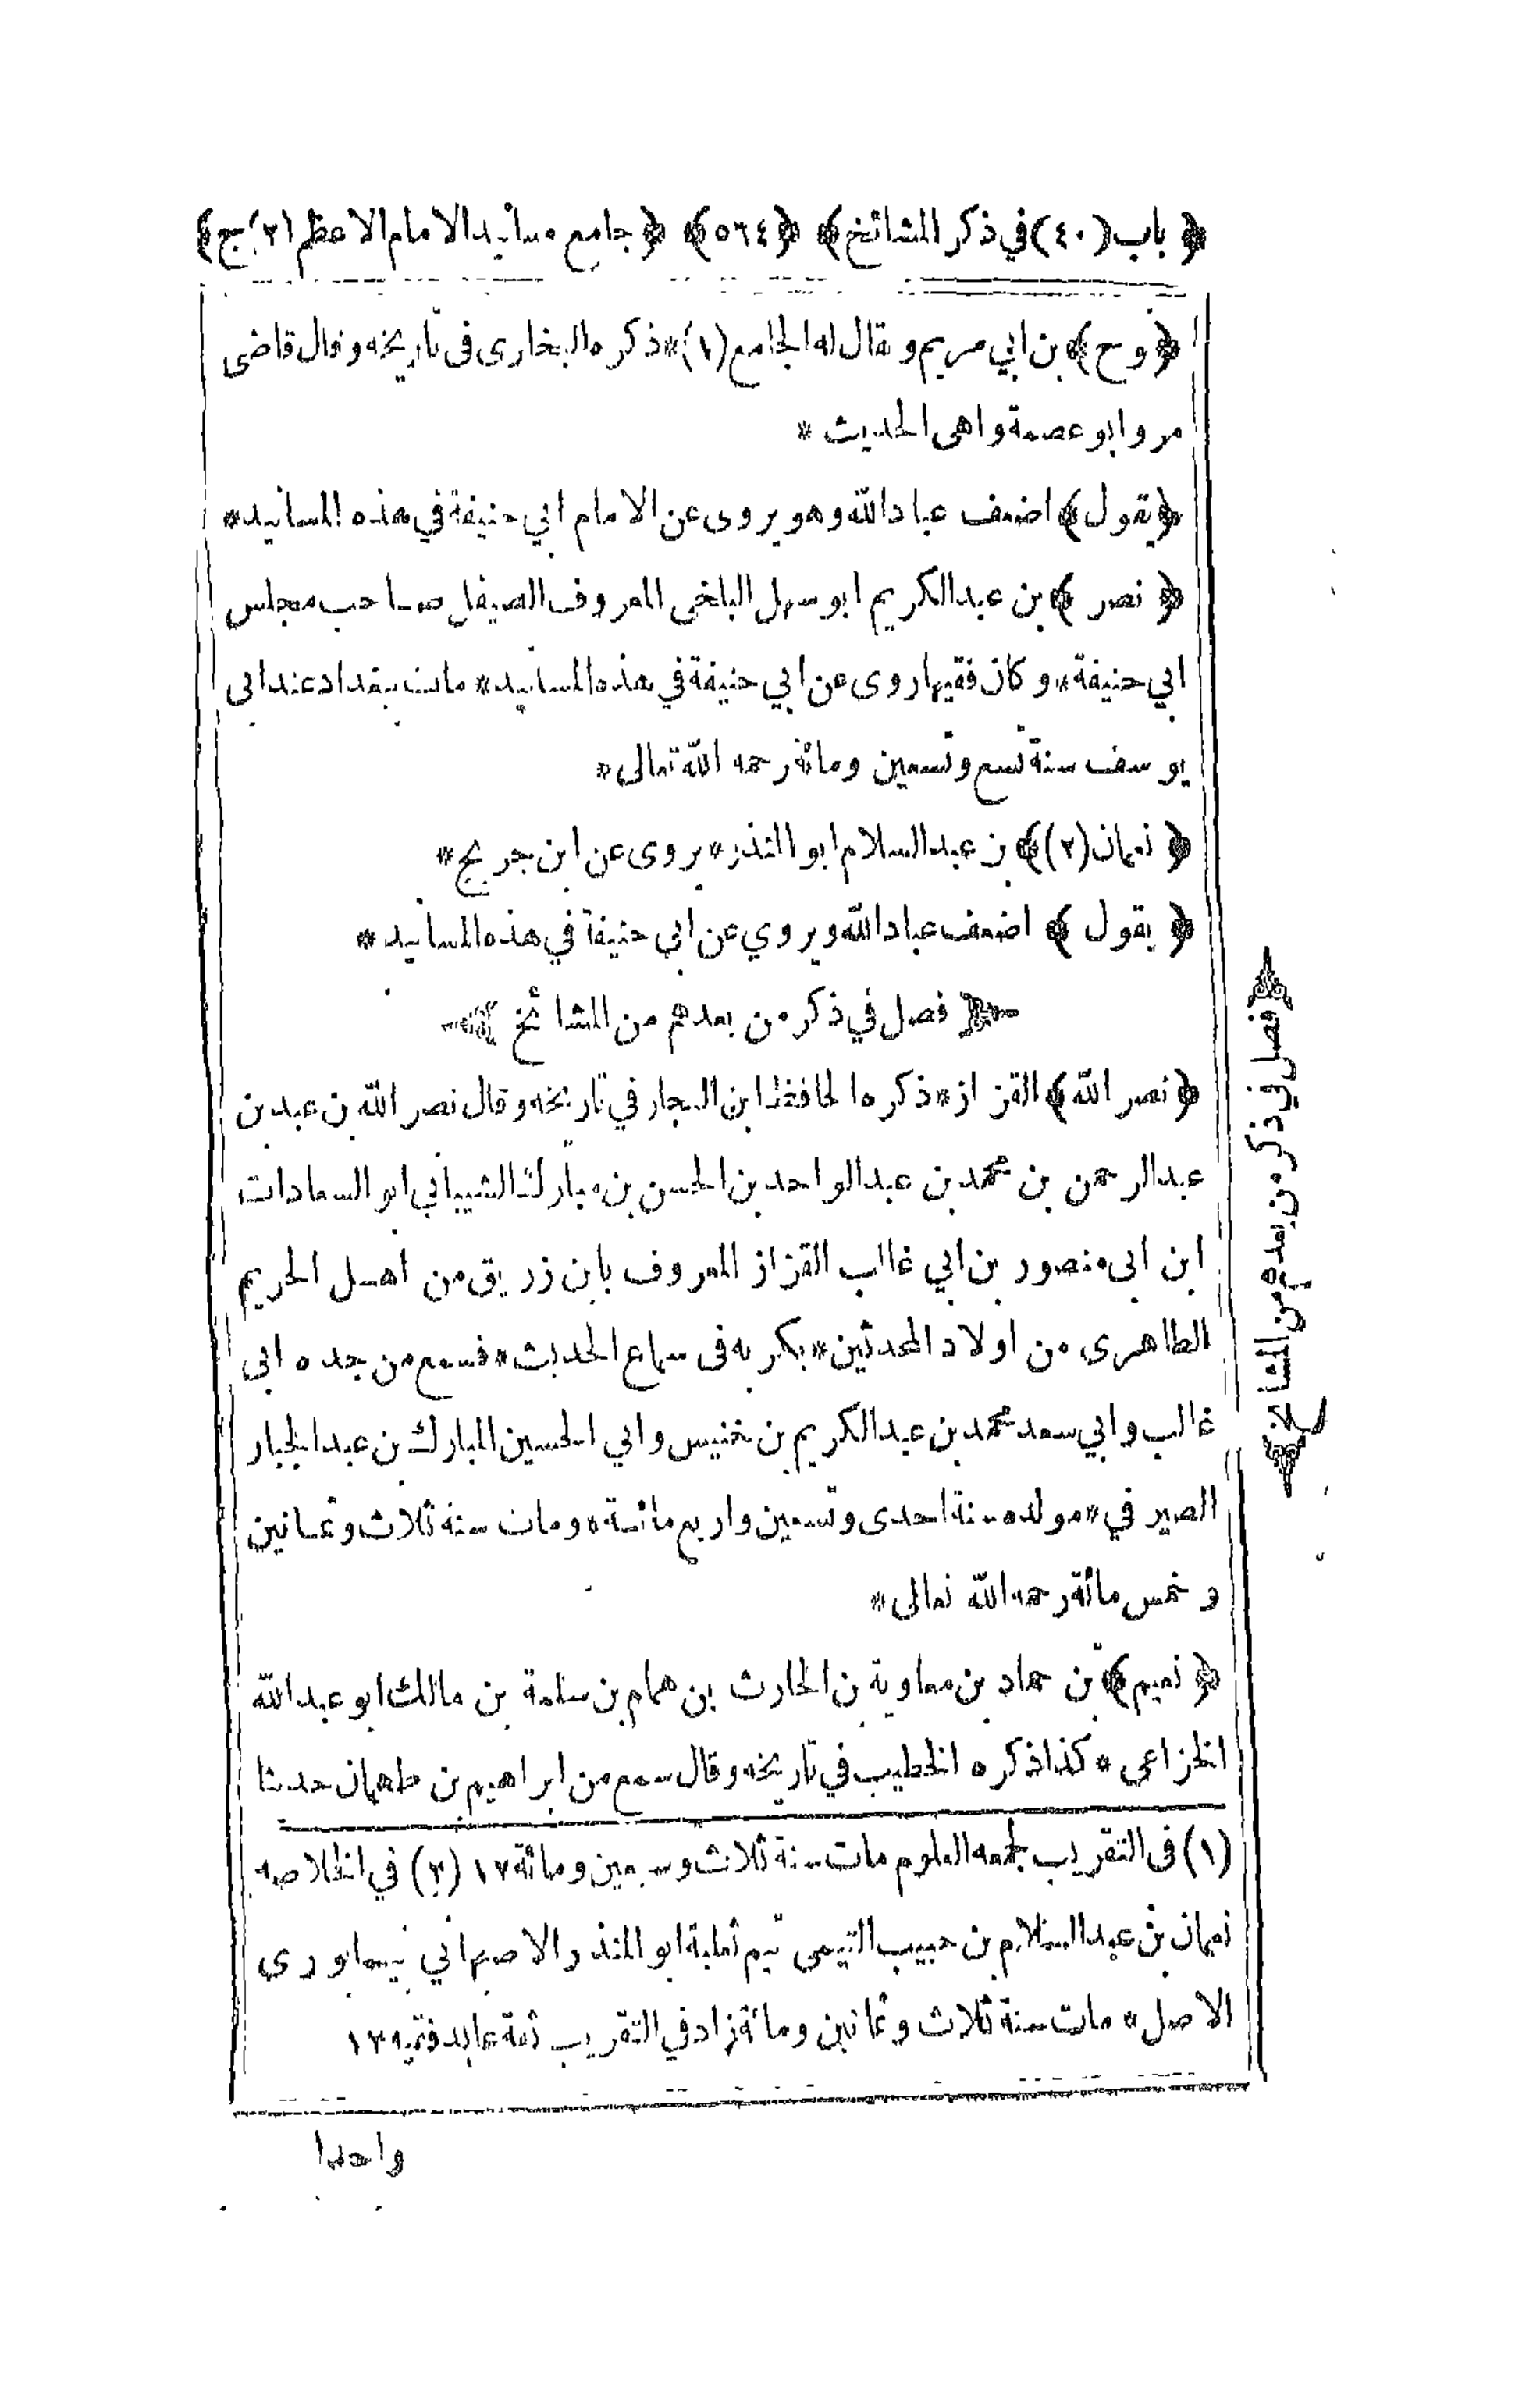 ﴿ باب (٤٠) في ذكر المشائخ ﴾ ﴿ ٥٦٤ ﴾ ﴿ جامع مسانيد الامام الاعظم (٢) ج ﴾
﴿ وح ﴾ بن ابي مريم و يقال له الجامع (١) * ذكره البخارى فى تاريخه وقال قاضى
مرو ابو عصمة واهى الحديث *
﴿ يقول ﴾ اضعف عباد الله وهو يروى عن الامام ابي حنيفة في هذه المسانيد *
﴿ نصر ﴾ بن عبد الكريم ابو سهل البلخى المعروف الصيقل صاحب مجلس
ابي حنيفة * و كان فقيها روى عن ابي حنيفة في هذه المسانيد * مات ببغداد عند ابى
يوسف سنة تسع وتسعين ومائة رحمه الله تعالى *
﴿ نعمان (٢) ﴾ بن عبد السلام ابو المنذر * يروى عن ابن جريج *
﴿ يقول ﴾ اضعف عباد الله ويروي عن ابي حنيفة في هذه المسانيد *
﴿ فصل في ذكر من بعدهم من المشائخ ﴾
﴿ نصر الله ﴾ القزاز * ذكره الحافظ ابن النجار في تاريخه وقال نصر الله بن عبد بن
عبد الرحمن بن محمد بن عبد الواحد بن الحسن بن مبارك الشيباني ابو السعادات
ابن ابى منصور بن ابي غالب القزاز المعروف بابن زريق من اهل الحريم
الطاهرى من اولاد المحدثين * بكر به فى سماع الحديث * فسمع من جده ابى
غالب وابي سعد محمد بن عبد الكريم بن خنيس وابي الحسين المبارك بن عبد الجبار
الصيرفي * مولده سنة احدى وتسعين واربع مائة * ومات سنة ثلاث وثمانين
وخمس مائة رحمه الله تعالى *
﴿ نعيم ﴾ بن حماد بن معاوية بن الحارث بن همام بن سلمة بن مالك ابو عبد الله
الخزاعى * كذا ذكره الخطيب في تاريخه وقال سمع من ابراهيم بن طهمان حديثا
(١) فى التقريب لجمعه العلوم مات سنة ثلاث وسبعين ومائة ١٢ (٢) في الخلاصه
نعمان بن عبد السلام بن حبيب التيمى تيم ثعلبة ابو المنذر الاصبهاني نيسابورى
الاصل * مات سنة ثلاث وثمانين ومائة زاد في التقريب ثقة عابد فقيه ١٢
واحدا
فصل في ذكر من بعدهم من المشائخ